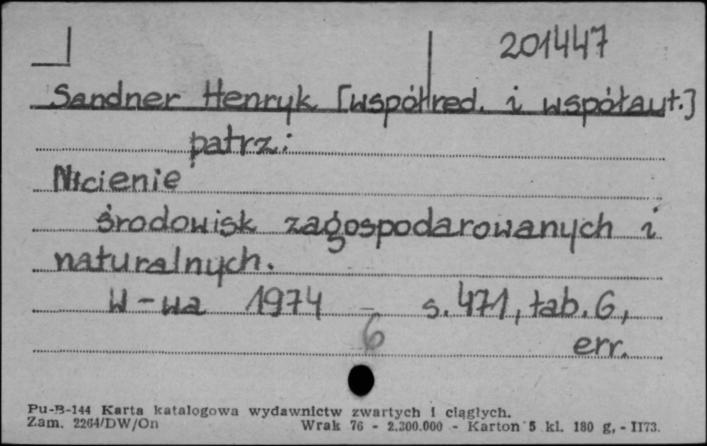 201447
Sandner Henryk [współred. i współaut.]
patrz:
Nicienie
środowisk zagospodarowanych i
naturalnych.
W-wa 1974 - s. 471, tab. 6,
6 err.
Pu-B-144 Karta katalogowa wydawnictw zwartych i ciągłych.
Zam. 2264/DW/On Wrak 76 - 2.300.000 - Karton 5 kl. 180 g. - II73.